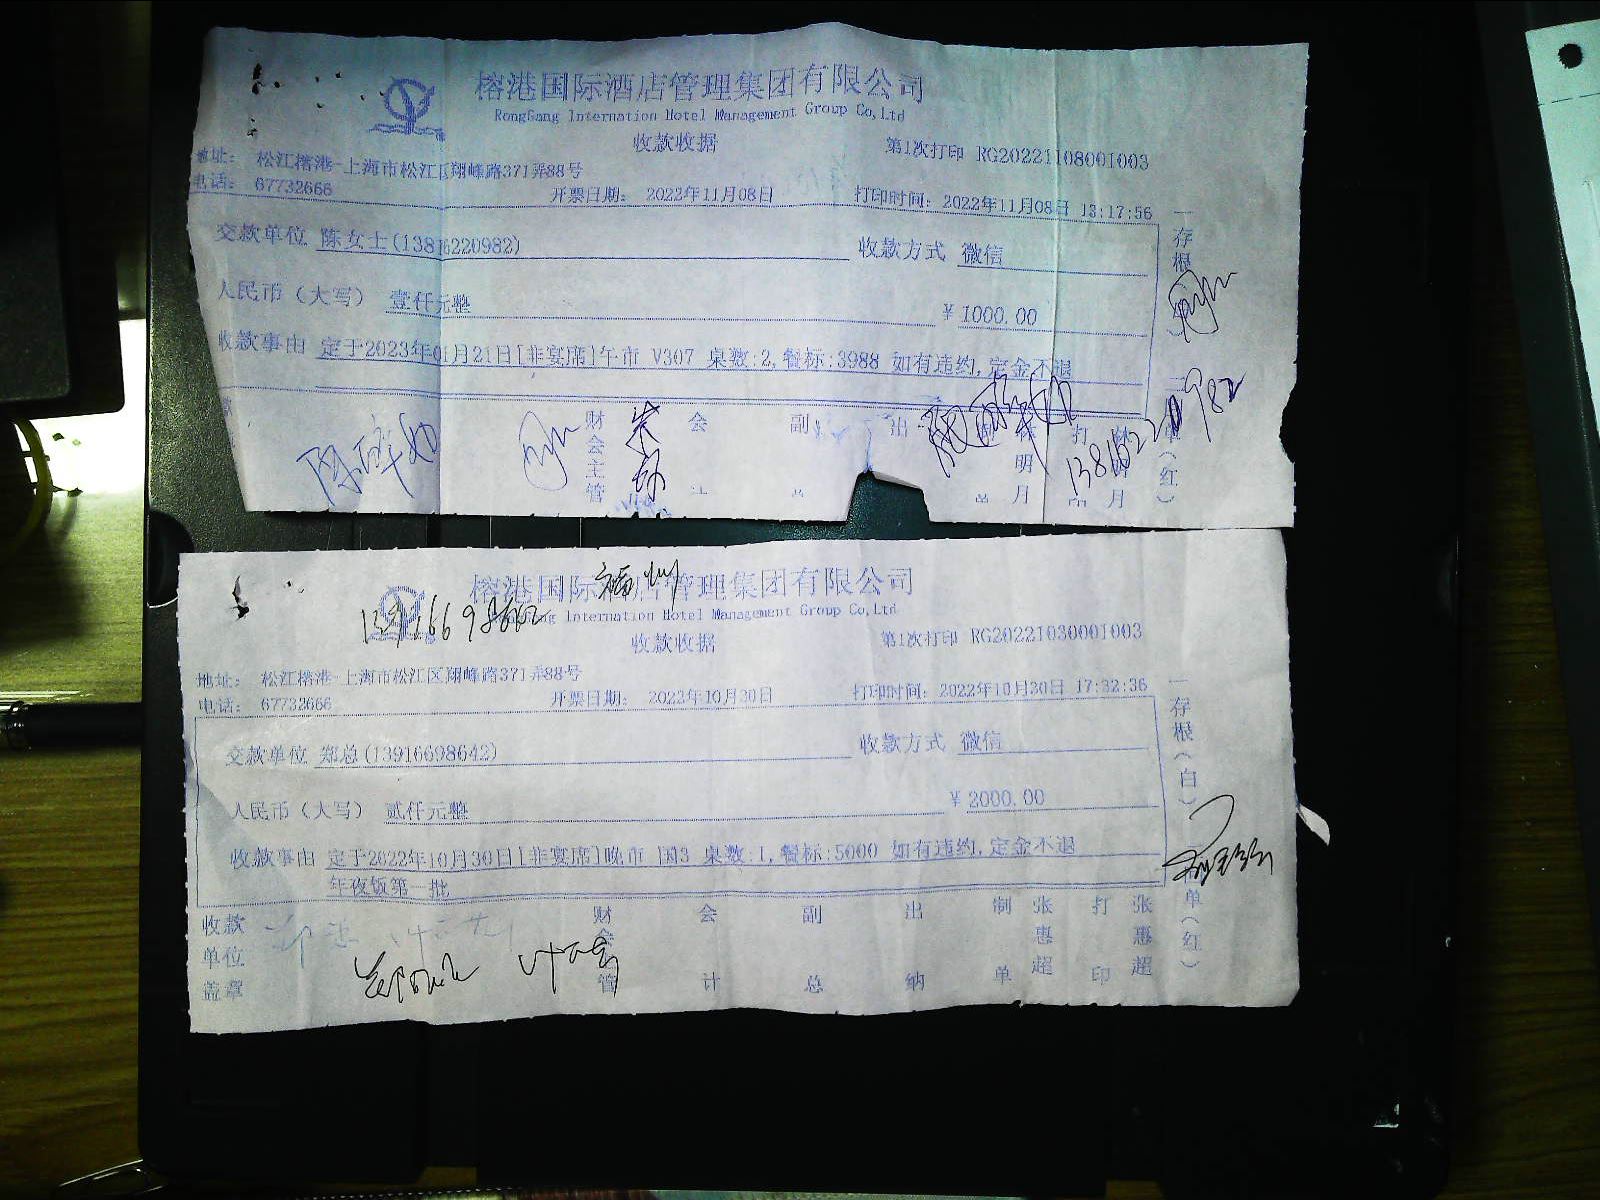 榕港国际酒店管理集团有限公司
RongGang Internation Hotel Management Group Co,Ltd
收款收据
第1次打印 RG20221108001003
地址： 松江榕港-上海市松江区翔峰路371弄88号
电话： 67732666 开票日期： 2022年11月08日 打印时间：2022年11月08日 13:17:56
交款单位 陈女士(13816220982) 收款方式 微信
人民币（大写） 壹仟元整 ￥1000.00
收款事由 定于2023年01月21日[非宴席]午市 V307 桌数:2,餐标:3988 如有违约,定金不退
存根
单（红）
财会主管 会计 副总 出 打印
13816220982
榕港国际酒店管理集团有限公司
福州
RongGang Internation Hotel Management Group Co,Ltd
收款收据
第1次打印 RG20221030001003
地址： 松江榕港-上海市松江区翔峰路371弄88号
电话： 67732666 开票日期： 2022年10月30日 打印时间：2022年10月30日 17:32:36
交款单位 郑总(13916698642) 收款方式 微信
人民币（大写） 贰仟元整 ￥2000.00
收款事由 定于2022年10月30日[非宴席]晚市 国3 桌数:1,餐标:5000 如有违约,定金不退
年夜饭第一批
一存根（白）
单（红）
收款单位盖章 财会 管 会计 副总 出纳 制单 张惠超 打印 张惠超